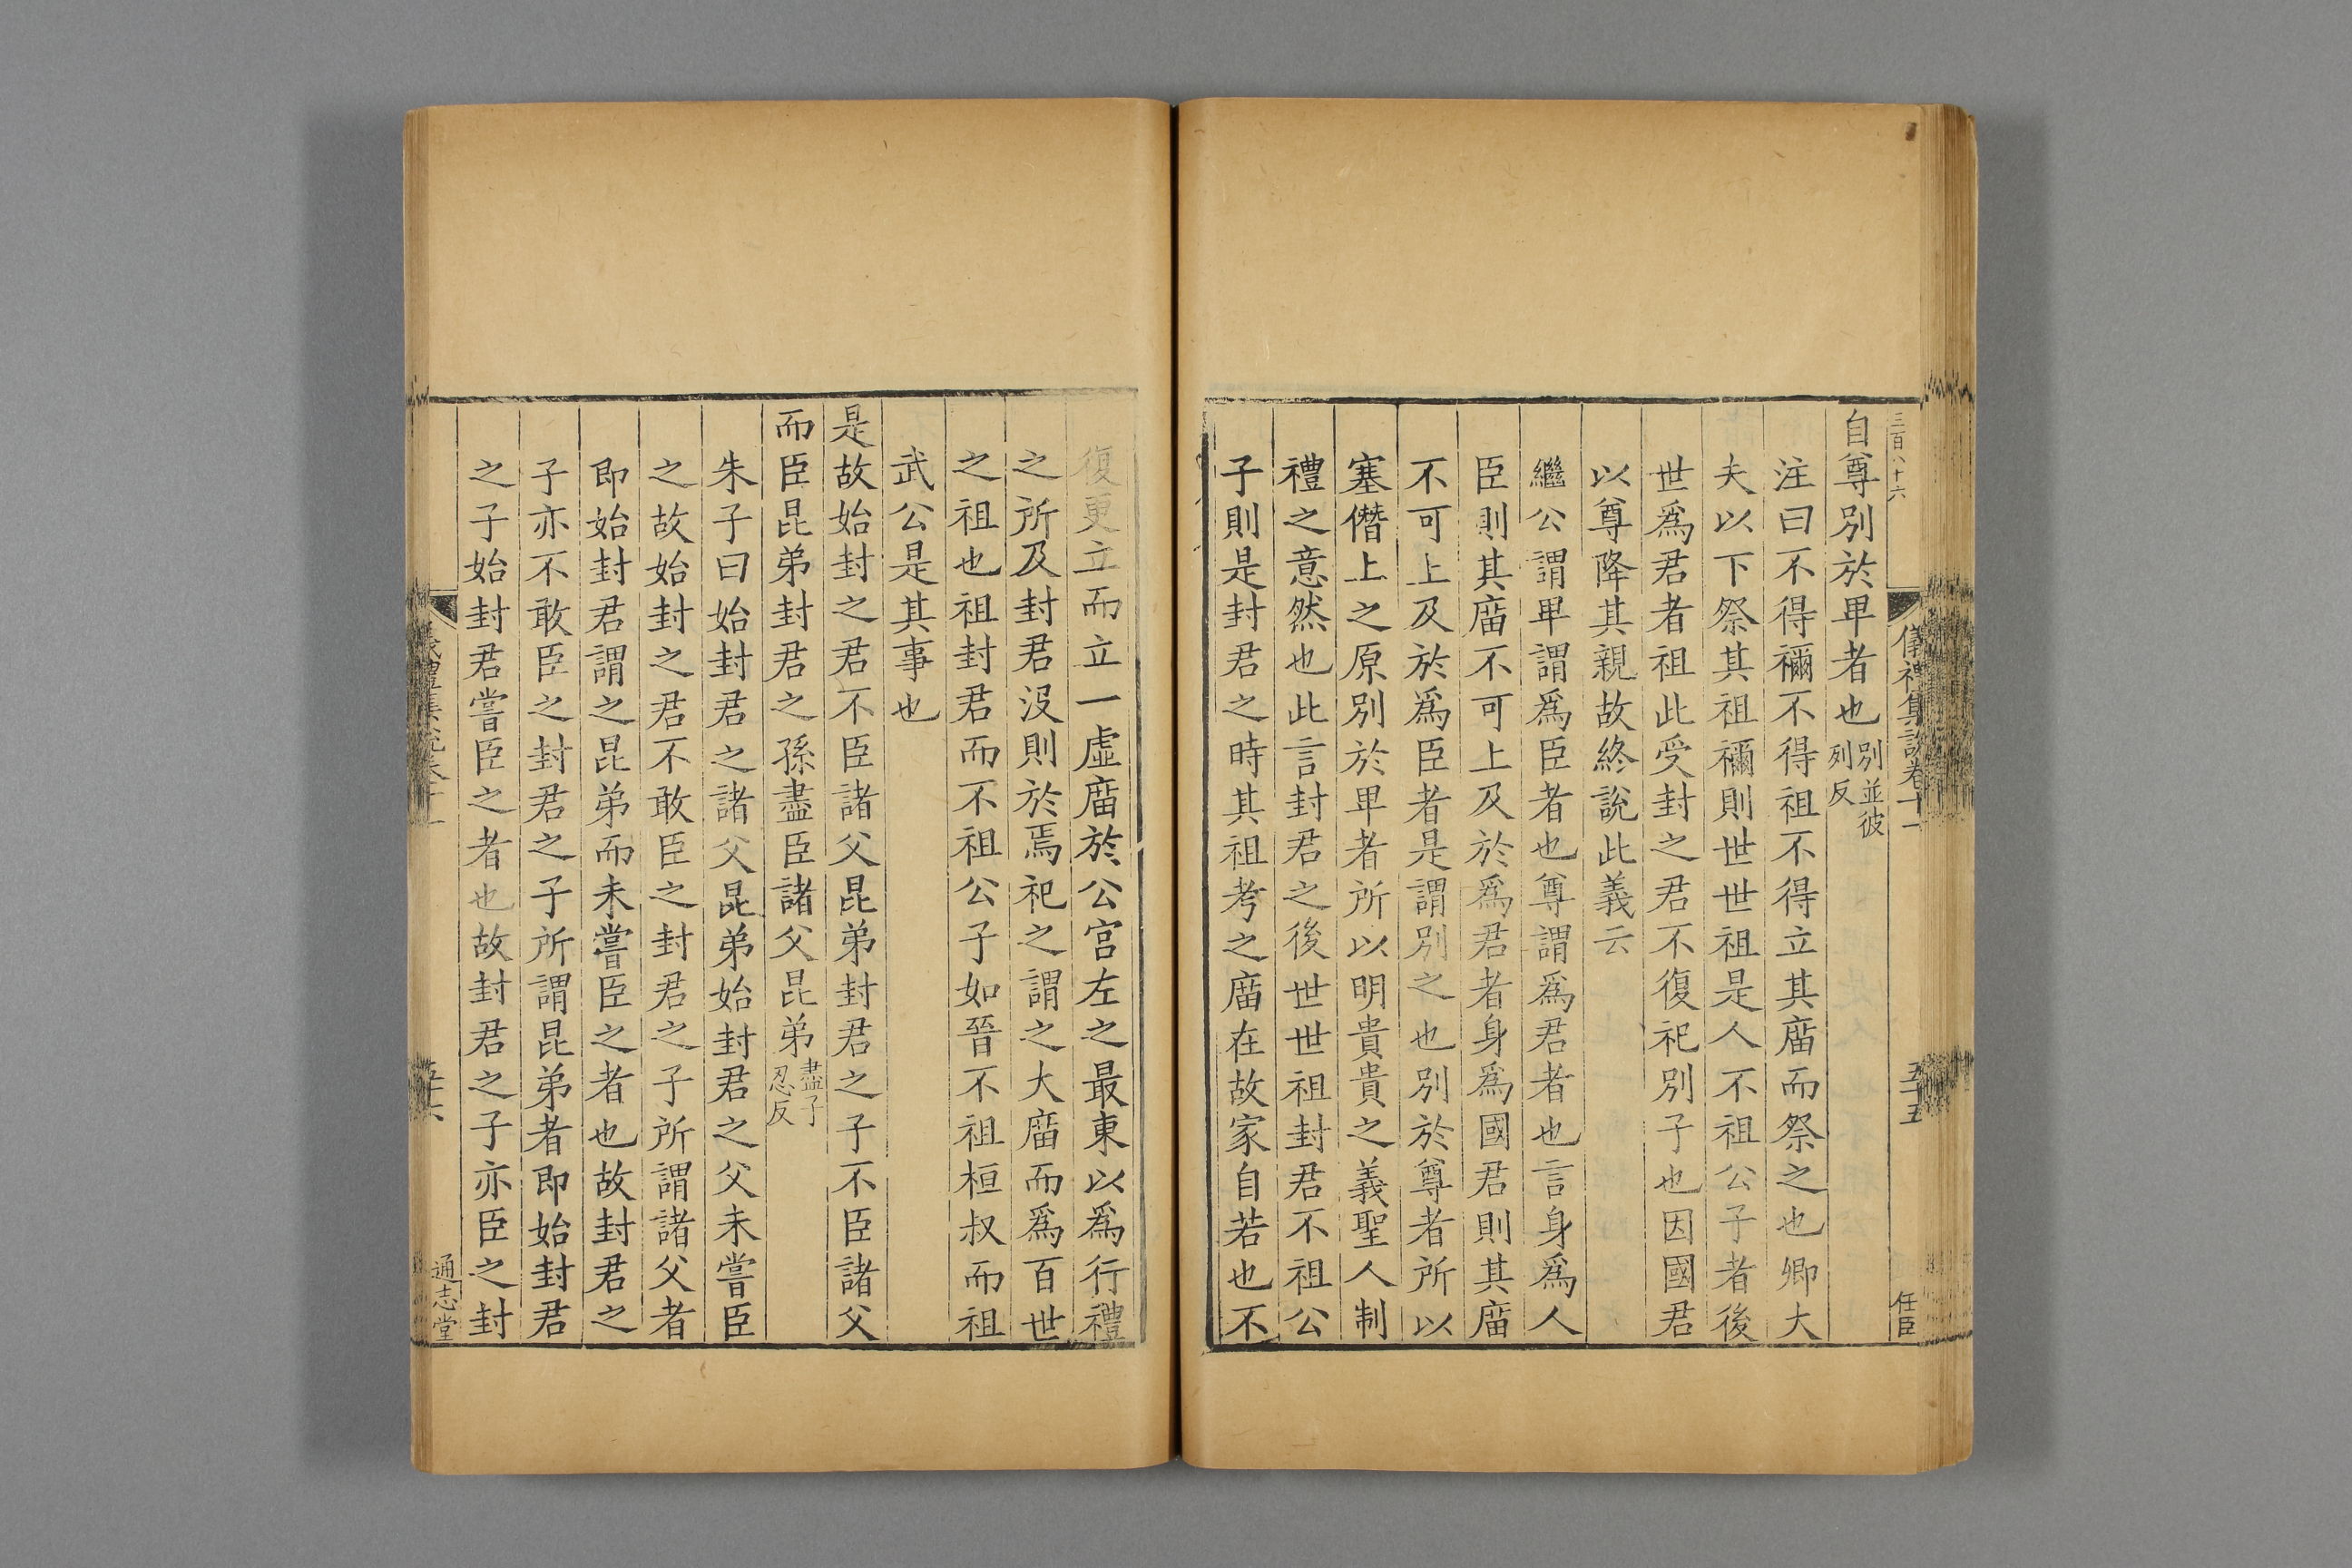 三百八十六
儀禮集說卷十一
五十五
任臣
自尊別於卑者也別並彼列反
注曰不得禰不得祖不得立其廟而祭之也卿大
夫以下祭其祖禰則世世祖是人不祖公子者後
世爲君者祖此受封之君不復祀別子也因國君
以尊降其親故終說此義云
繼公謂卑謂爲臣者也尊謂爲君者也言身爲人
臣則其廟不可上及於爲君者身爲國君則其廟
不可上及於爲臣者是謂別之也別於尊者所以
塞僭上之原別於卑者所以明貴貴之義聖人制
禮之意然也此言封君之後世世祖封君不祖公
子則是封君之時其祖考之廟在故家自若也不
復更立而立一虛廟於公宮左之最東以爲行禮
之所及封君沒則於焉祀之謂之大廟而爲百世
之祖也祖封君而不祖公子如晉不祖桓叔而祖
武公是其事也
是故始封之君不臣諸父昆弟封君之子不臣諸父
而臣昆弟封君之孫盡臣諸父昆弟盡子忍反
朱子曰始封君之諸父昆弟始封君之父未嘗臣
之故始封之君不敢臣之封君之子所謂諸父者
即始封君謂之昆弟而未嘗臣之者也故封君之
子亦不敢臣之封君之子所謂昆弟者即始封君
之子始封君嘗臣之者也故封君之子亦臣之封
通志堂